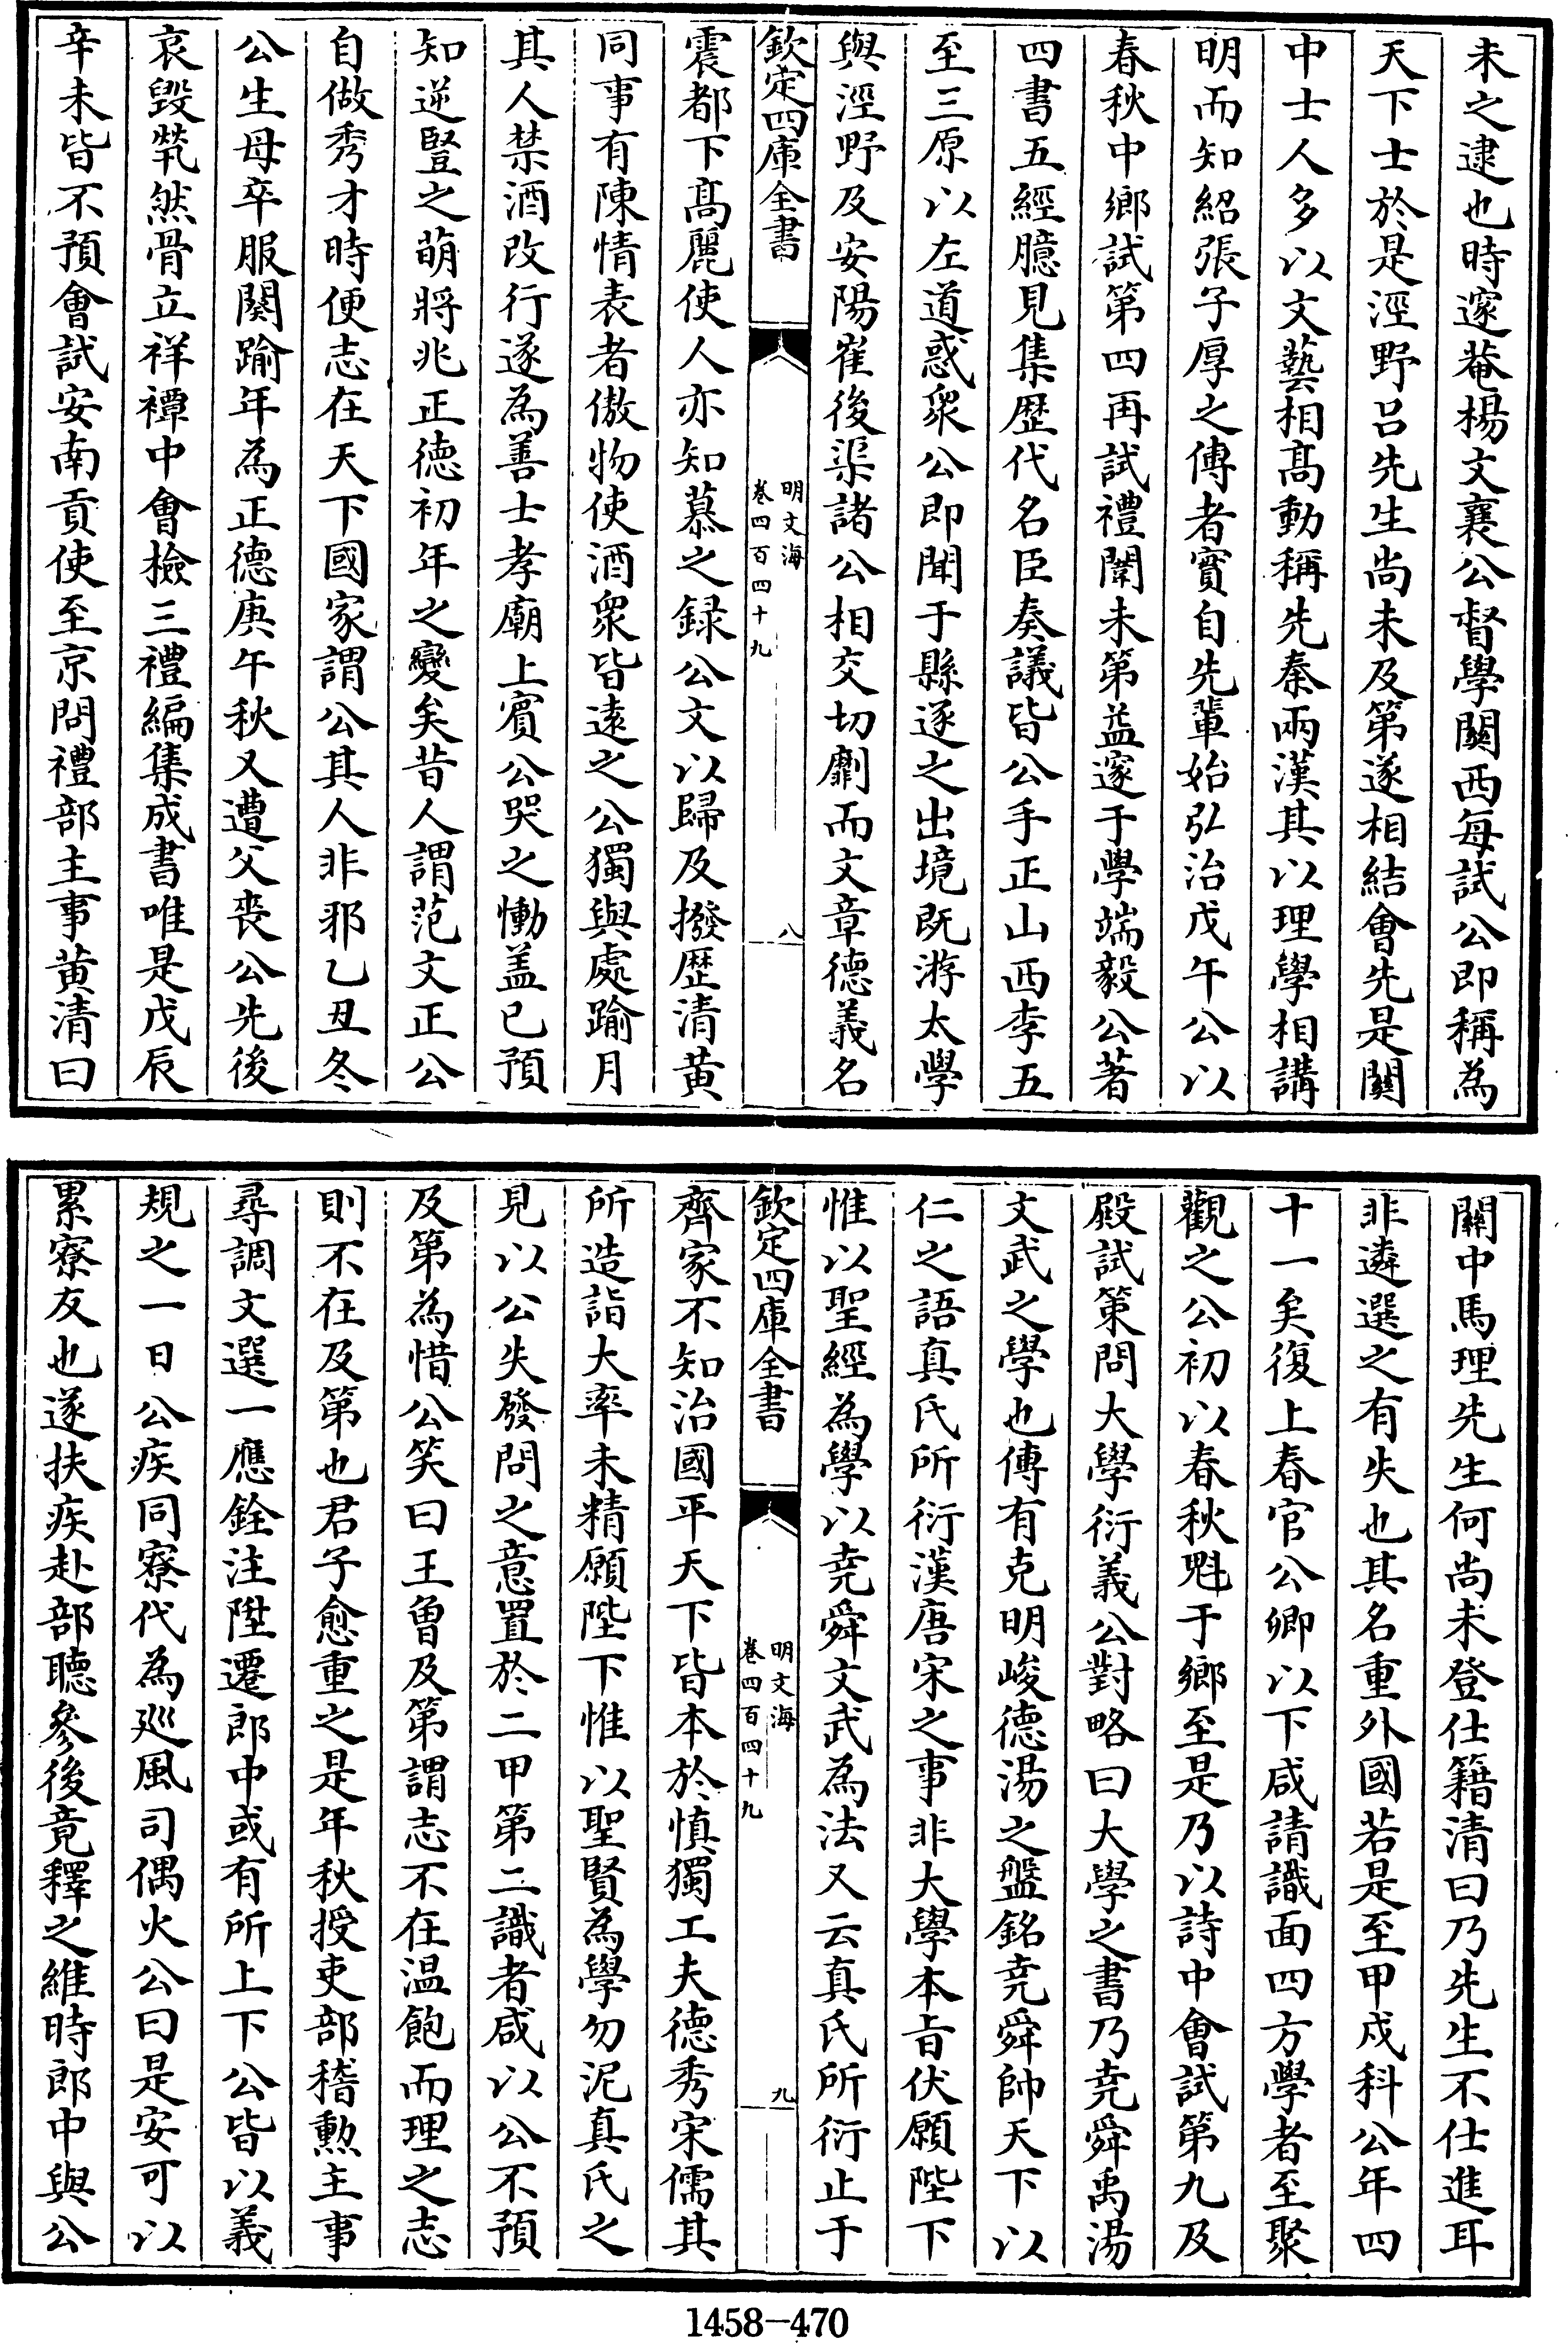 未之逮也時邃菴楊文襄公督學闗西每試公即稱為
天下士於是涇野吕先生尚未及第遂相結會先是闗
中士人多以文藝相髙動稱先秦兩漢其以理學相講
明而知紹張子厚之傳者實自先輩始弘治戊午公以
春秋中鄉試第四再試禮闈未第益邃于學端毅公著
四書五經臆見集歴代名臣奏議皆公手正山西李五
至三原以左道惑衆公即聞于縣遂之出境既游太學
與涇野及安陽崔後渠諸公相交切劘而文章德義名
欽定四庫全書
明文海
卷四百四十九
八
震都下髙麗使人亦知慕之録公文以歸及撥歴清黄
同事有陳情表者傲物使酒衆皆逺之公獨與處踰月
其人禁酒改行遂為善士孝廟上賓公哭之慟盖已預
知逆豎之萌將兆正德初年之變矣昔人謂范文正公
自做秀才時便志在天下國家謂公其人非邪乙丑冬
公生母卒服闋踰年為正德庚午秋又遭父喪公先後
哀毀㷀然骨立祥禫中會檢三禮編集成書唯是戊辰
辛未皆不預會試安南貢使至京問禮部主事黄清曰
闗中馬理先生何尚未登仕籍清曰乃先生不仕進耳
非遴選之有失也其名重外國若是至甲戍科公年四
十一矣復上春官公卿以下咸請識面四方學者至聚
觀之公初以春秋魁于鄉至是乃以詩中會試第九及
殿試策問大學衍義公對略曰大學之書乃堯舜禹湯
文武之學也傳有克明峻德湯之盤銘堯舜帥天下以
仁之語真氏所衍漢唐宋之事非大學本㫖伏願陛下
惟以聖經為學以堯舜文武為法又云真氏所衍止于
欽定四庫全書
明文海
卷四百四十九
九
齊家不知治國平天下皆本於慎獨工夫德秀宋儒其
所造詣大率未精願陛下惟以聖賢為學勿泥真氏之
見以公失發問之意置於二甲第二識者咸以公不預
及第為惜公笑曰王曽及第謂志不在温飽而理之志
則不在及第也君子愈重之是年秋授吏部稽勲主事
尋調文選一應銓注陞遷郎中或有所上下公皆以義
規之一日公疾同寮代為廵風司偶火公曰是安可以
累寮友也遂扶疾赴部聽參後竟釋之維時郎中與公
1458—470